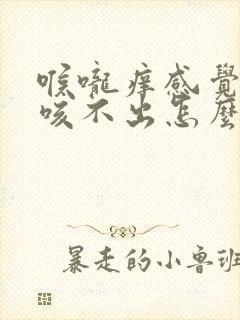 喉嚨痒感覺
咳不出怎麼
暴走的小鲁班